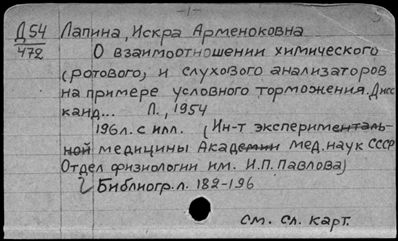 -1-
Д54 Лапина, Искра Арменоковна
472 О взаимоотношении химического
(ротового) и слухового анализаторов
на примере условного торможения. Дисс
канд... Л., 1954
196л. с илл. (Ин-т эксперименталь-
ной медицины Академии мед. наук СССР
Отдел физиологии им. И.П. Павлова)
Библиогр. л. 182-196
см. сл. карт.